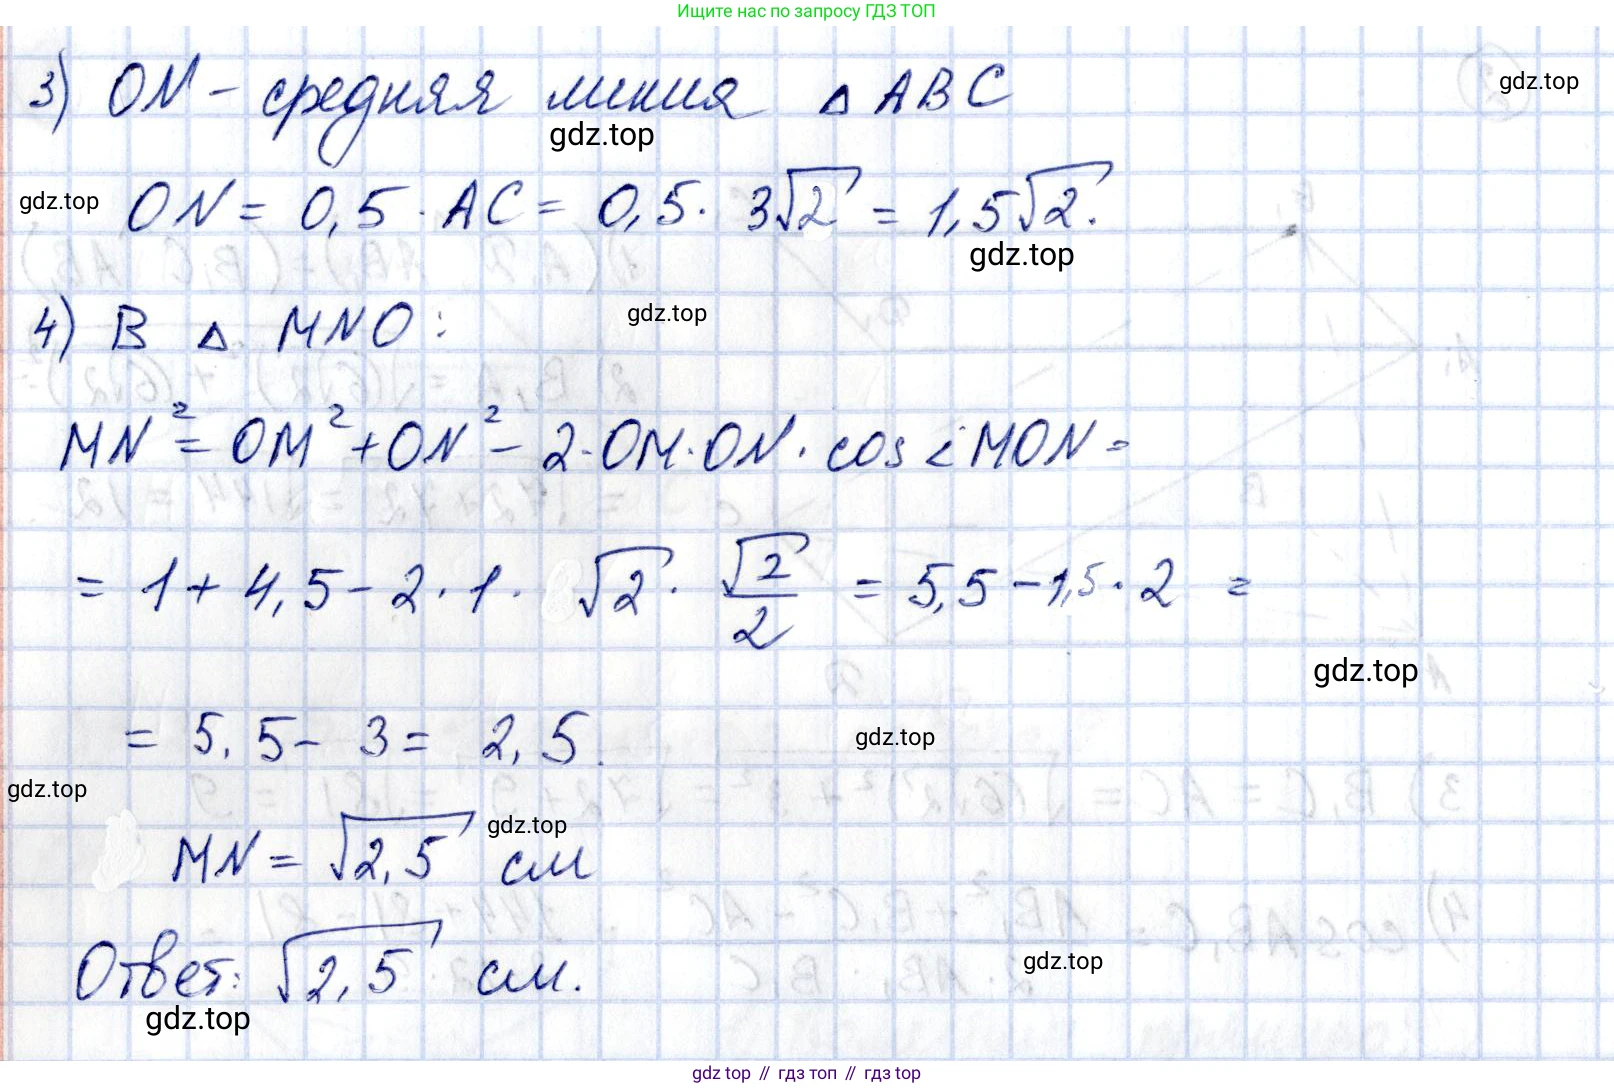 Ищите нас по запросу ГДЗ ТОП
3) ON - средняя линия △ ABC
gdz.top
gdz.top
gdz.top
ON = 0,5 · AC = 0,5 · 3√2 = 1,5√2.
gdz.top
4) В △ MNO:
gdz.top
MN² = OM² + ON² - 2·OM·ON · cos ∠MON =
= 1 + 4,5 - 2 · 1 · √2 · √2/2 = 5,5 - 1,5 · 2 =
gdz.top
= 5,5 - 3 = 2,5.
gdz.top
gdz.top
MN = √2,5 см
gdz.top
Ответ: √2,5 см.
gdz.top
gdz.top
gdz top // гдз топ // gdz top